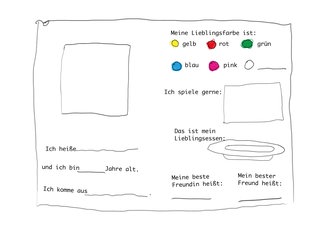 Ich heiße
und ich bin Jahre alt.
Ich komme aus
Meine Lieblingsfarbe ist:
gelb rot grün
blau pink
Ich spiele gerne:
Das ist mein
Lieblingsessen:
Meine beste
Freundin heißt:
Mein bester
Freund heißt: